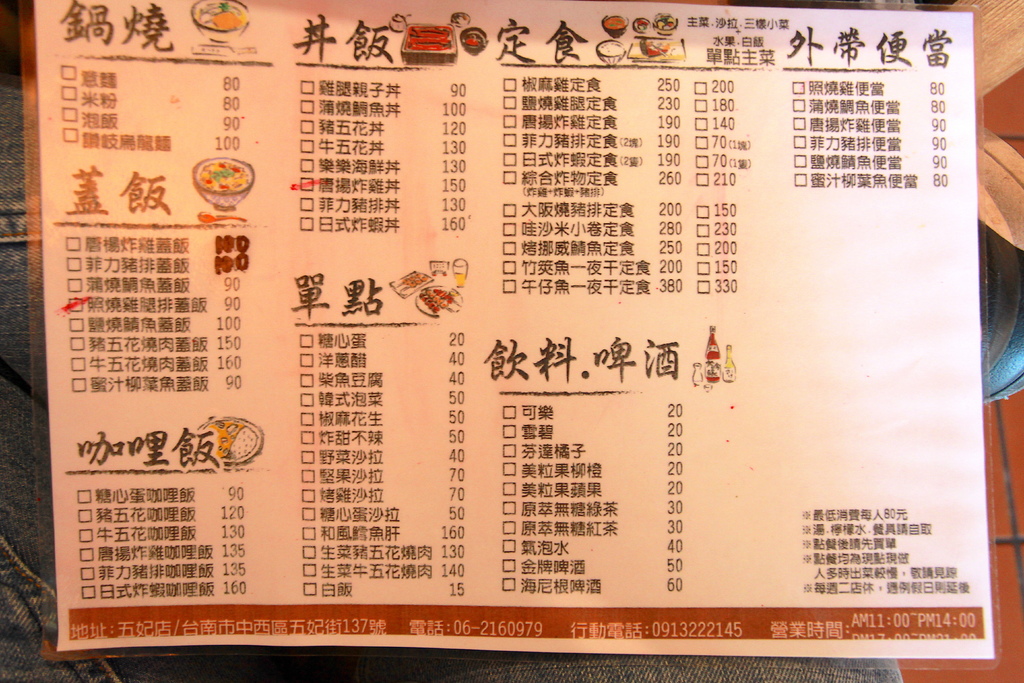 鍋燒
意麵 80
米粉 80
泡飯 90
讚岐烏龍麵 100
蓋飯
唐楊炸雞蓋飯 100
菲力豬排蓋飯 100
蒲燒鯛魚蓋飯 90
照燒雞腿排蓋飯 90
鹽燒鯖魚蓋飯 100
豬五花燒肉蓋飯 150
牛五花燒肉蓋飯 160
蜜汁柳葉魚蓋飯 90
咖哩飯
糖心蛋咖哩飯 90
豬五花咖哩飯 120
牛五花咖哩飯 130
唐揚炸雞咖哩飯 135
菲力豬排咖哩飯 135
日式炸蝦咖哩飯 160
丼飯
雞腿親子丼 90
蒲燒鯛魚丼 100
豬五花丼 120
牛五花丼 130
樂樂海鮮丼 130
唐揚炸雞丼 150
菲力豬排丼 130
日式炸蝦丼 160
單點
糖心蛋 20
洋蔥醋 40
柴魚豆腐 40
韓式泡菜 50
椒麻花生 50
炸甜不辣 50
野菜沙拉 40
堅果沙拉 70
烤雞沙拉 70
糖心蛋沙拉 50
和風鱈魚肝 160
生菜豬五花燒肉 130
生菜牛五花燒肉 140
白飯 15
定食
主菜.沙拉.三樣小菜
水果.白飯
單點主菜
椒麻雞定食 250 200
鹽燒雞腿定食 230 180
唐揚炸雞定食 190 140
菲力豬排定食(2塊) 190 70(1塊)
日式炸蝦定食(2隻) 190 70(1隻)
綜合炸物定食 260 210
(炸雞+炸蝦+豬排)
大阪燒豬排定食 200 150
哇沙米小卷定食 280 230
烤挪威鯖魚定食 250 200
竹筴魚一夜干定食 200 150
午仔魚一夜干定食 380 330
飲料.啤酒
可樂 20
雪碧 20
芬達橘子 20
美粒果柳橙 20
美粒果蘋果 20
原萃無糖綠茶 30
原萃無糖紅茶 30
氣泡水 40
金牌啤酒 50
海尼根啤酒 60
外帶便當
照燒雞便當 80
蒲燒鯛魚便當 80
唐揚炸雞便當 90
菲力豬排便當 90
鹽燒鯖魚便當 90
蜜汁柳葉魚便當 80
※最低消費每人80元
※湯.檸檬水.餐具請自取
※點餐後請先買單
※點餐均為現點現做
人多時出菜較慢,敬請見諒
※每週二店休,遇例假日則延後
地址:五妃店/台南市中西區五妃街137號 電話:06-2160979 行動電話:0913222145 營業時間:AM11:00~PM14:00
PM17:00~PM21:00